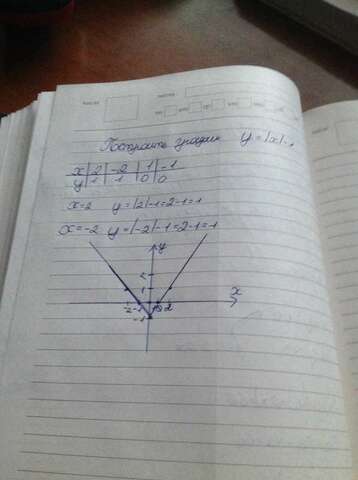 Построить график y=|x|-1
x 2 -2 1 -1
y 1 1 0 0
x=2 y=|2|-1=2-1=1
x=-2 y=|-2|-1=2-1=1
y
2
1
x
-2 -1 1 2
-1